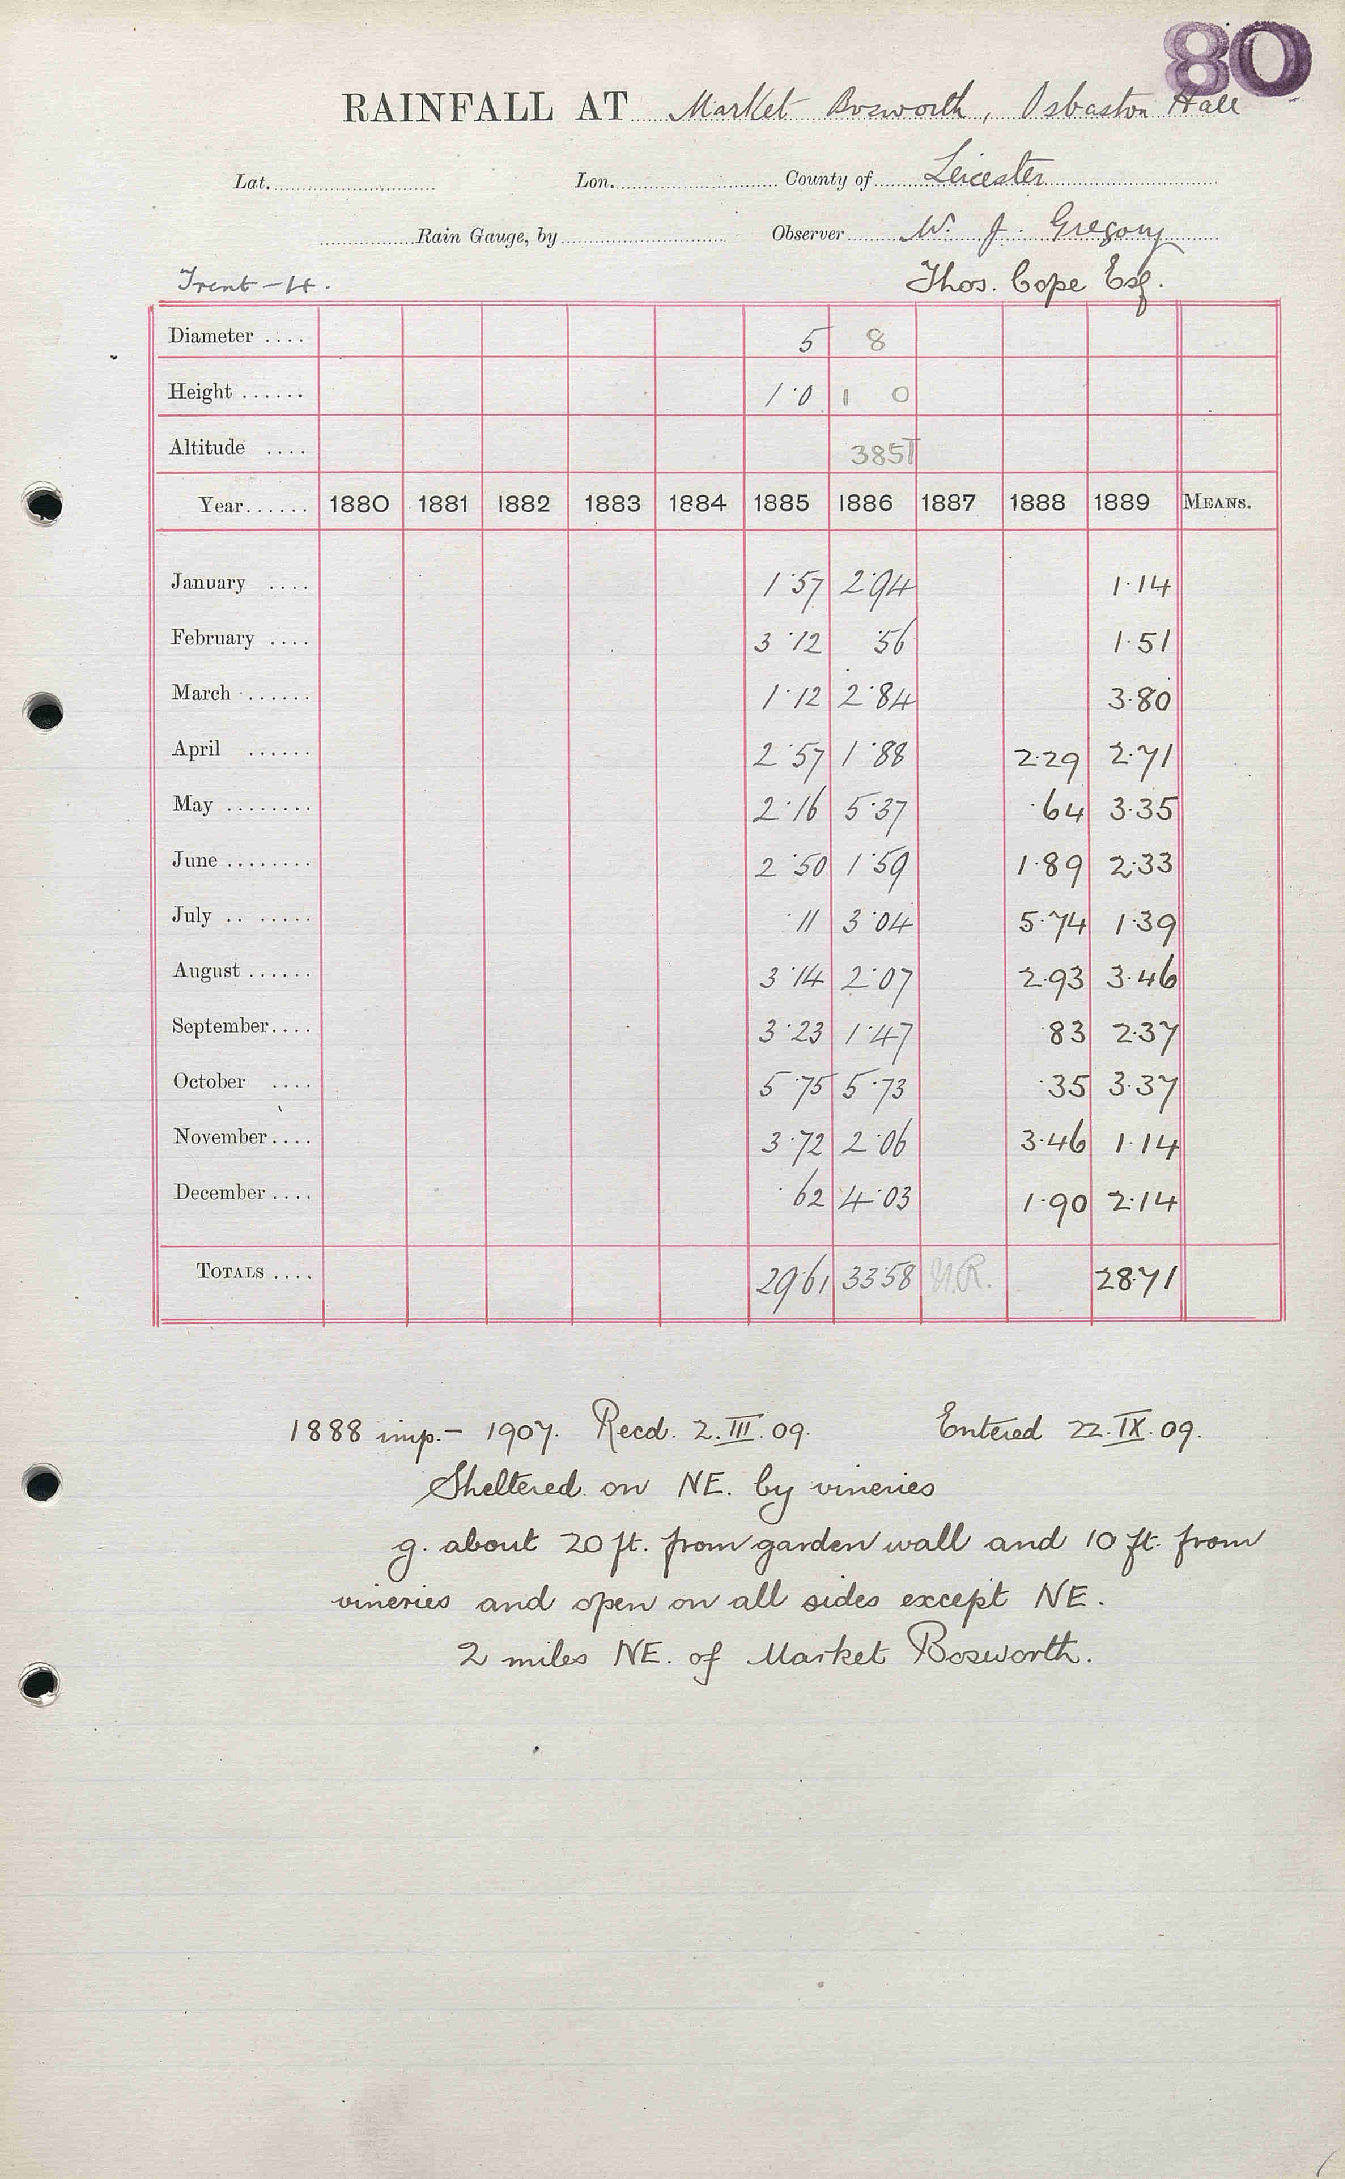 80
RAINFALL AT Market Bosworth, Osbaston Hall
Lat. Lon. County of Leicester
Rain Gauge, by Observer W. J. Gregory
Trent-H. Thos. Cope Esq.
Diameter .... 5 8
Height ...... 1·0 1 0
Altitude .... 385T
Year...... 1880 1881 1882 1883 1884 1885 1886 1887 1888 1889 MEANS.
January .... 1·57 2·94 1·14
February .... 3·12 ·56 1·51
March ...... 1·12 2·84 3·80
April ...... 2·57 1·88 2·29 2·71
May ........ 2·16 5·37 ·64 3·35
June ........ 2·50 1·59 1·89 2·33
July .. ...... ·11 3·04 5·74 1·39
August ...... 3·14 2·07 2·93 3·46
September.... 3·23 1·47 ·83 2·37
October .... 5·75 5·73 ·35 3·37
November.... 3·72 2·06 3·46 1·14
December .... ·62 4·03 1·90 2·14
TOTALS .... 29·61 33·58 N.R. 28·71
1888 imp.- 1907. Recd. 2.III.09. Entered 22.IX.09.
Sheltered on NE. by vineries
g. about 20 ft. from garden wall and 10 ft. from
vineries and open on all sides except NE.
2 miles NE. of Market Bosworth.